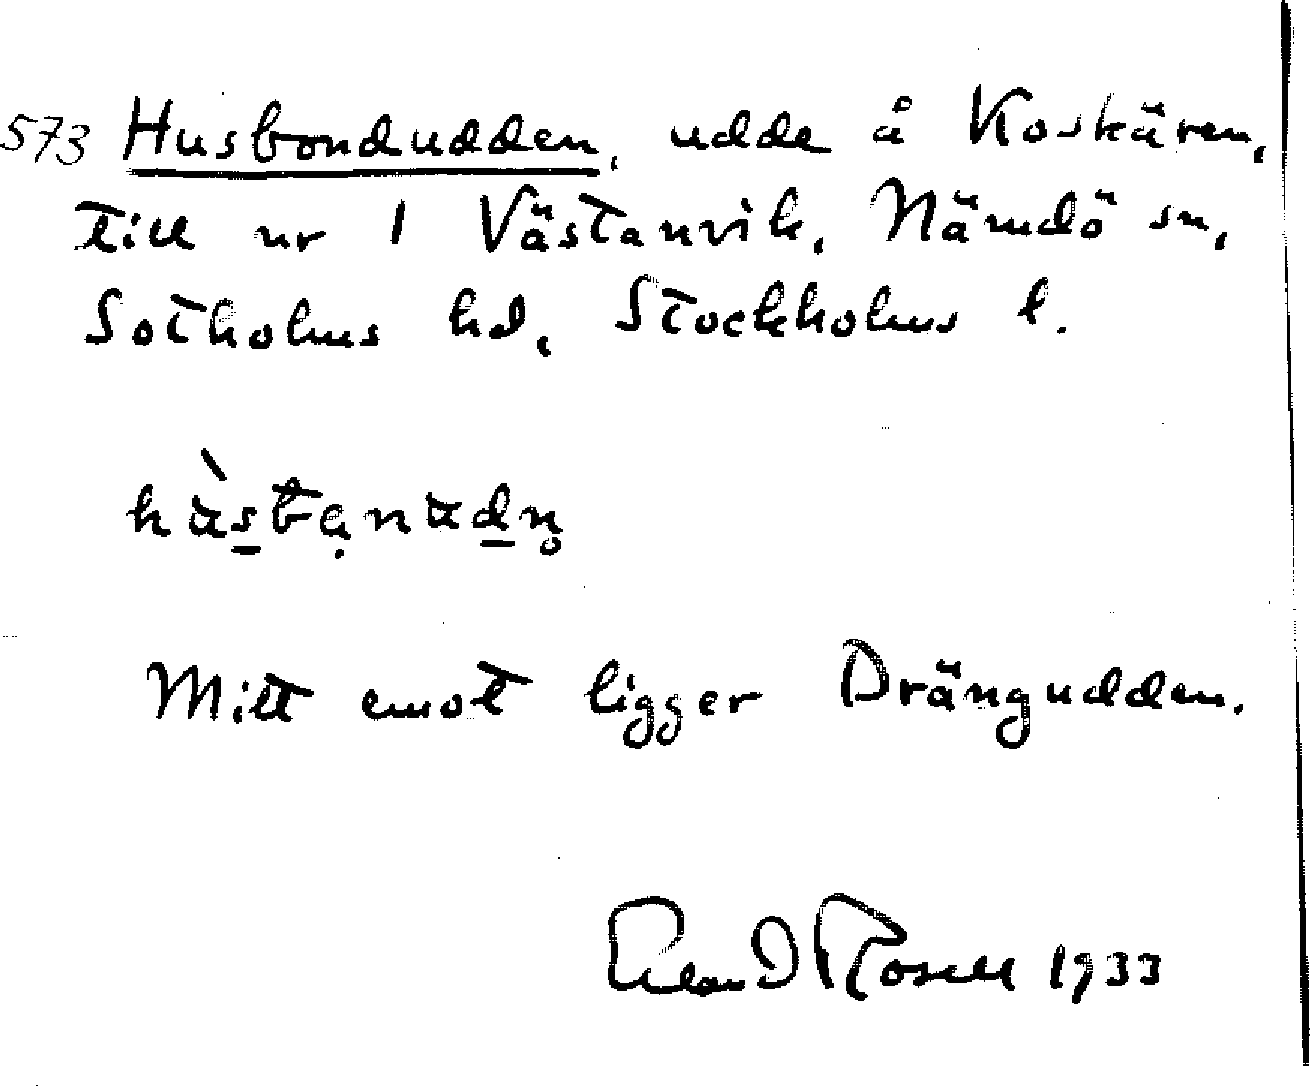 573 Husbondudden, udde å Koskären,
till nr 1 Västanvik, Nämdö sn,
Sotholms hd, Stockholms l.
Mitt emot ligger Drängudden.
1933